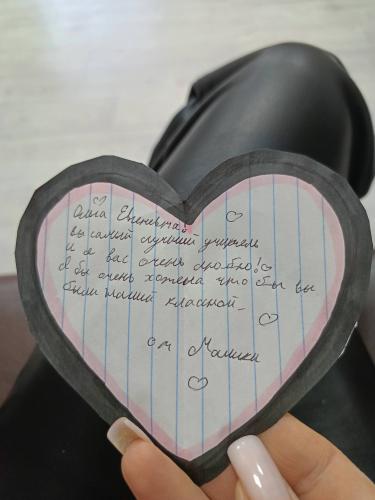 Ольга Евгеневна!
вы самый лучший учитель
и я вас очень люблю!
Я бы очень хотела что бы вы
были нашей класной
от Малики